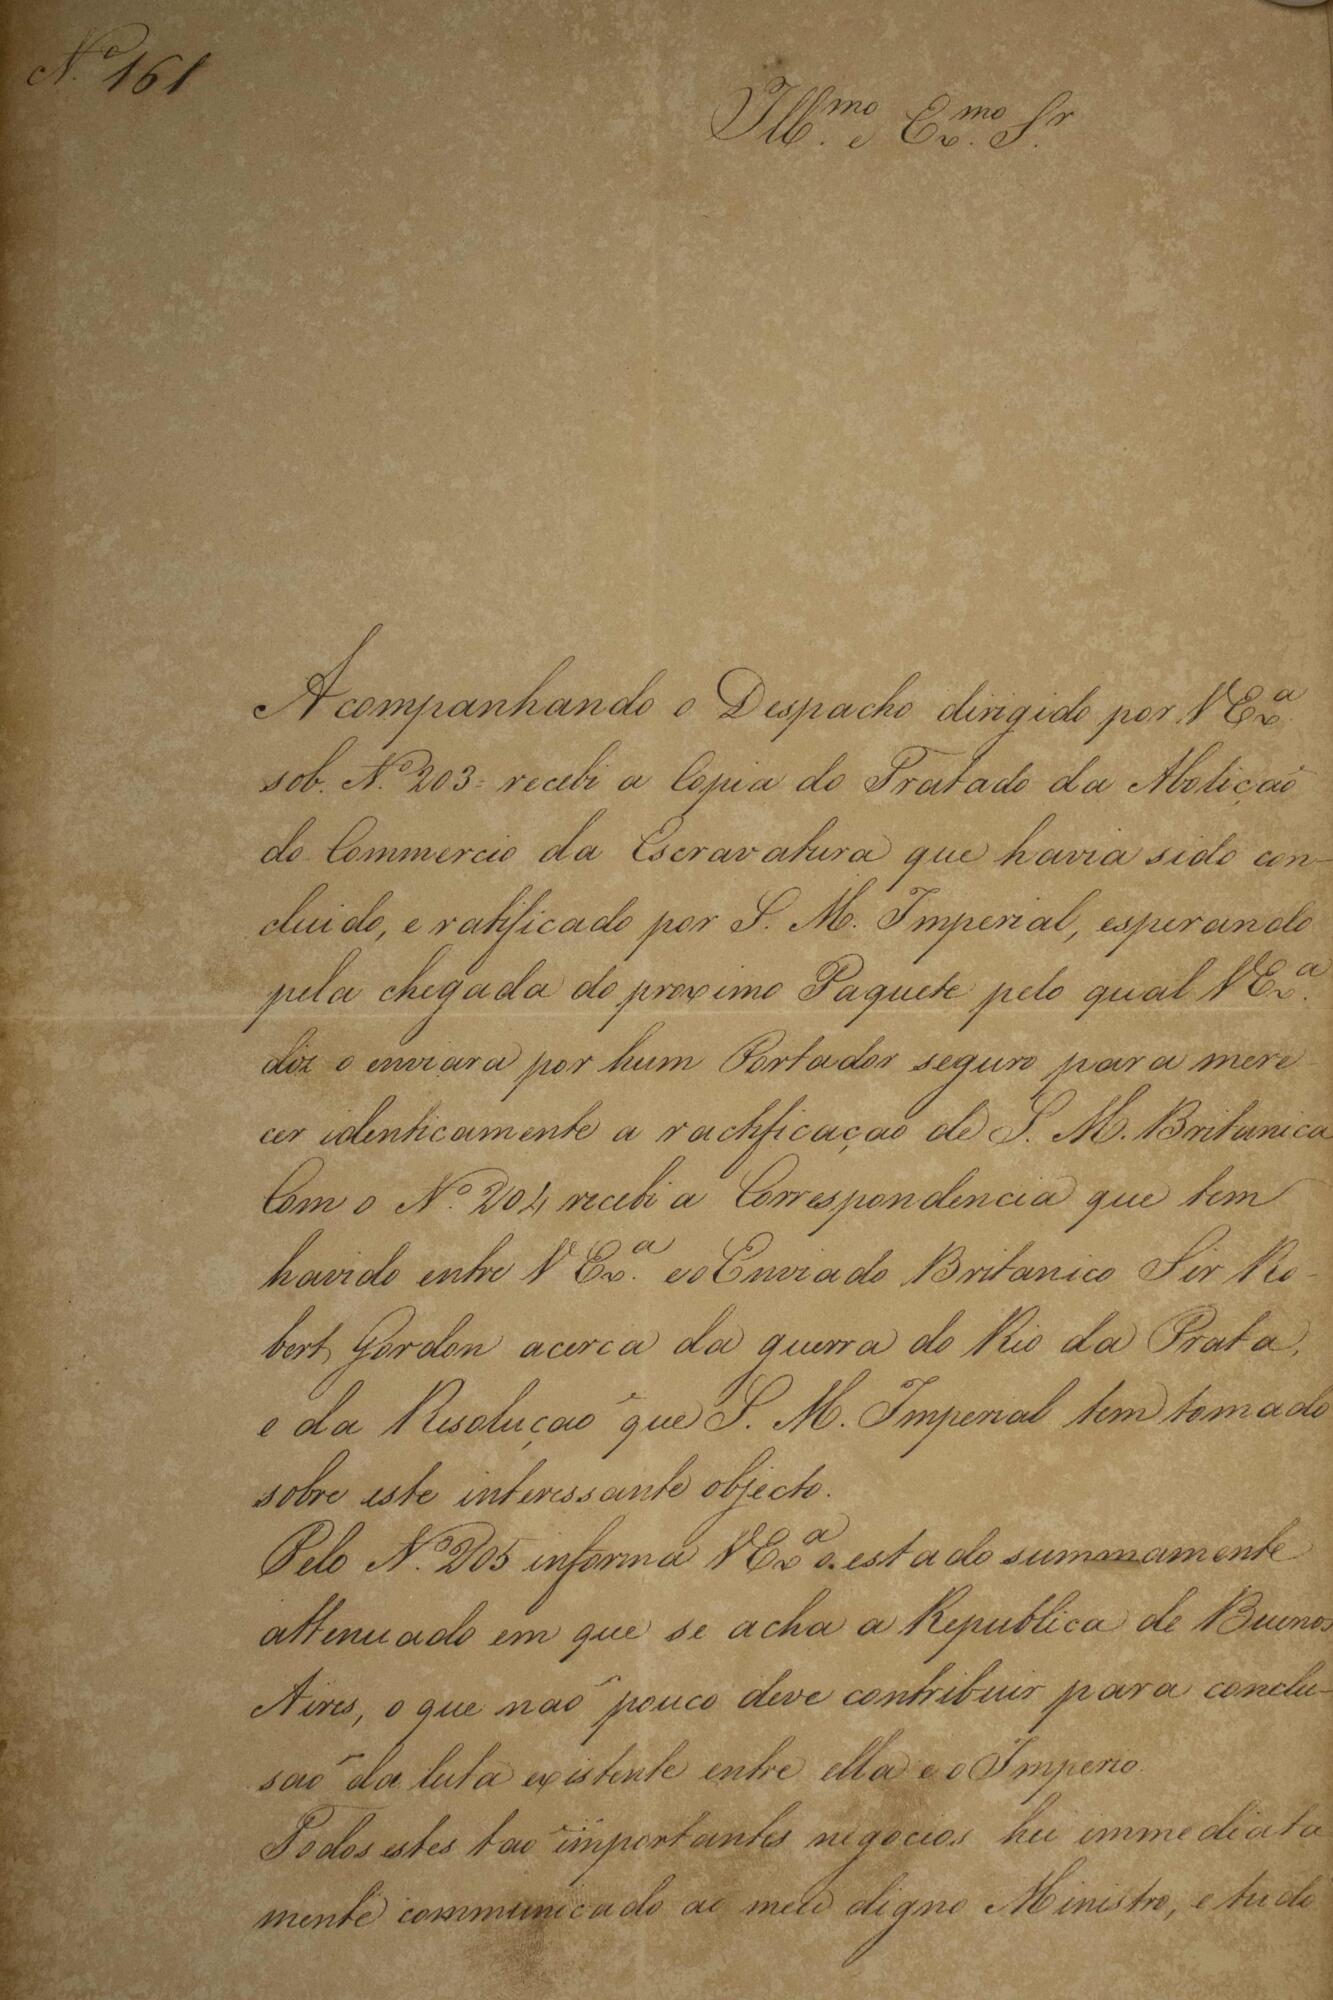 N.º 161
Ill.mo e Ex.mo Sr.
Acompanhando o Despacho dirigido por V Ex.a
sob. N.º 203 = recebi a Copia do Tratado da Aboliçaõ
do Commercio da Escravatura que havia sido con-
cluido, e ratificado por S. M. Imperial, esperando
pela chegada do proximo Paquete pelo qual V Ex.a
diz o enviara por hum Portador seguro para mere-
cer identicamente a ractificaçaõ de S. M. Britanica
Com o N.º 204 recebi a Correspondencia que tem
havido entre V Ex.a e o Enviado Britanico Sir Ro-
bert Gordon acerca da guerra do Rio da Prata,
e da Resoluçaõ que S. M. Imperial tem tomado
sobre este interessante objecto.
Pelo N.º 205 informa V Ex.a o estado summamente
attenuado em que se acha a Republica de Buenos
Aires, o que naõ pouco deve contribuir para conclu-
saõ da luta existente entre ella e o Imperio.
Todos estes taõ importantes negocios hei immediata
mente communicado ao meu digno Ministro, e tudo